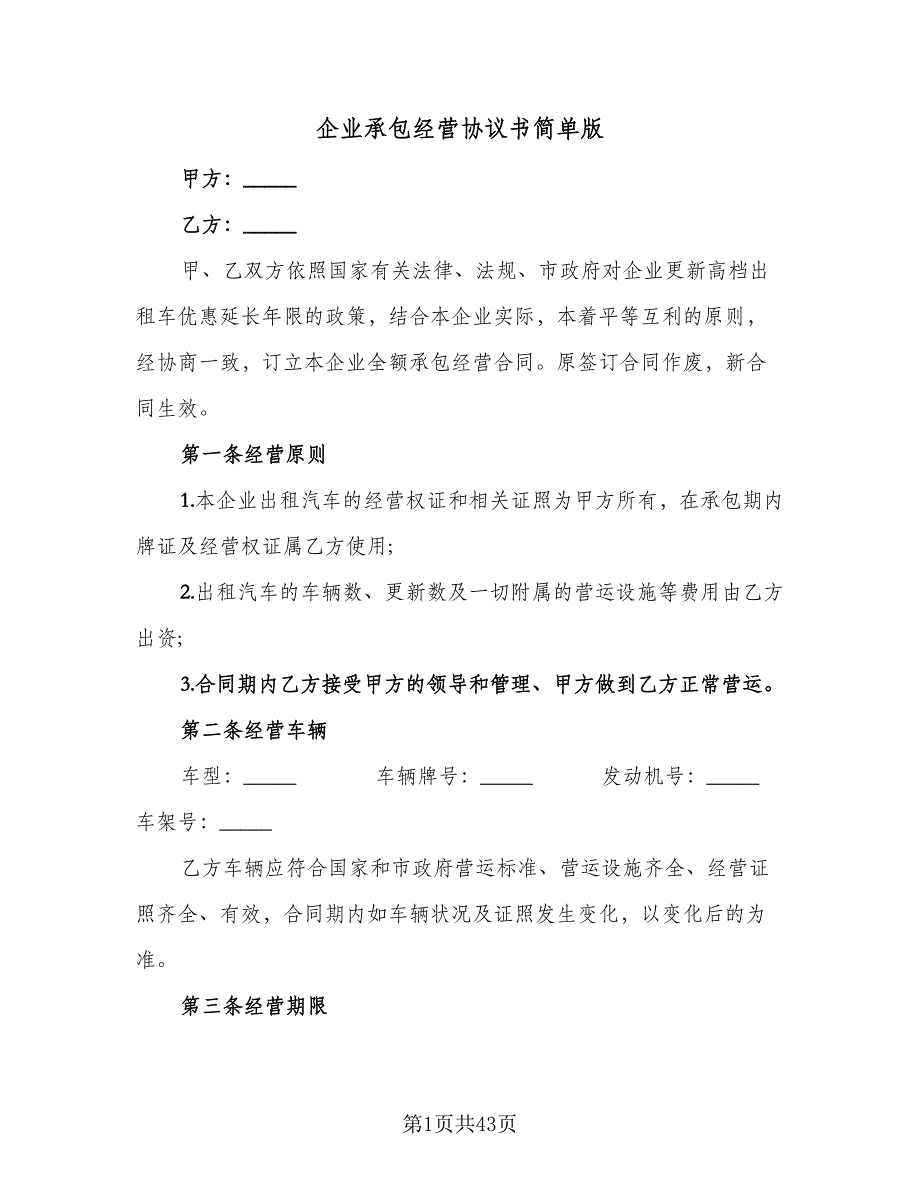 企业承包经营协议书简单版
甲方：_____
乙方：_____
甲、乙双方依照国家有关法律、法规、市政府对企业更新高档出
租车优惠延长年限的政策，结合本企业实际，本着平等互利的原则，
经协商一致，订立本企业全额承包经营合同。原签订合同作废，新合
同生效。
第一条经营原则
1.本企业出租汽车的经营权证和相关证照为甲方所有，在承包期内
牌证及经营权证属乙方使用;
2.出租汽车的车辆数、更新数及一切附属的营运设施等费用由乙方
出资;
3.合同期内乙方接受甲方的领导和管理、甲方做到乙方正常营运。
第二条经营车辆
车型：_____ 车辆牌号：_____ 发动机号：_____
车架号：_____
乙方车辆应符合国家和市政府营运标准、营运设施齐全、经营证
照齐全、有效，合同期内如车辆状况及证照发生变化，以变化后的为
准。
第三条经营期限
第1页共43页